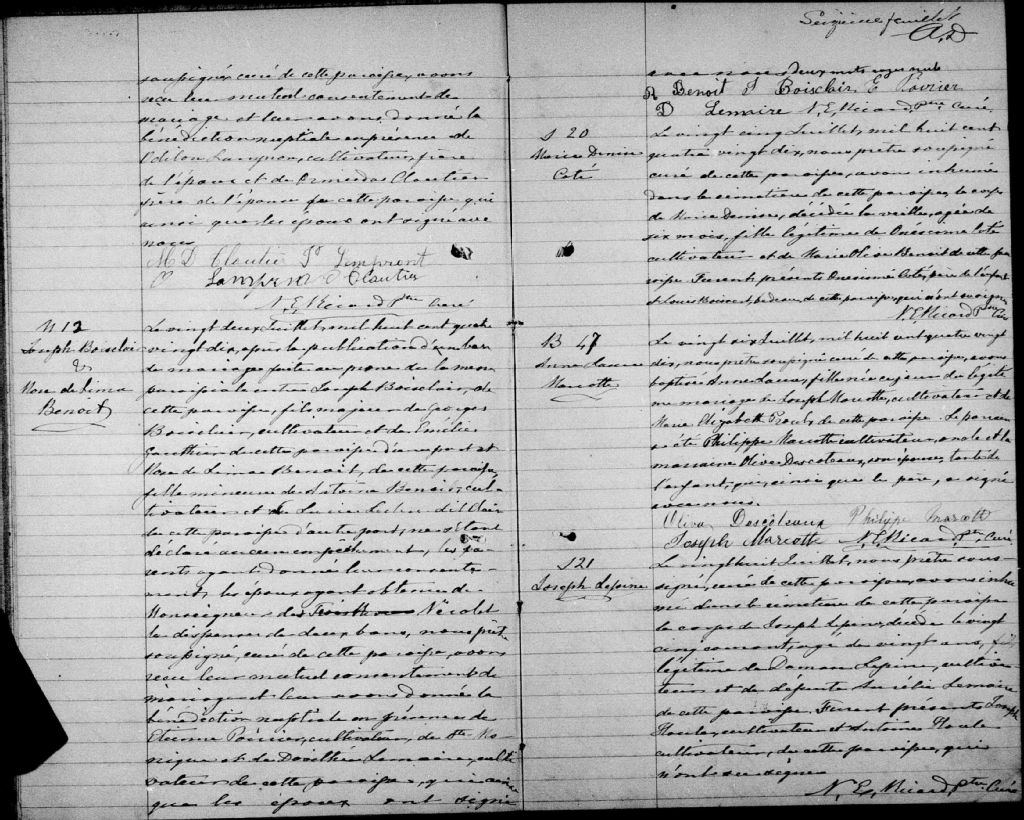 Seizième feuillet
A.D
soussigné, curé de cette paroisse, avons
reçu leur mutuel consentement de
mariage et leur avons donné la
bénédiction nuptiale en présence de
Odilon Lampron, cultivateur, frère
de l'époux et de Ormisdas Cloutier
frère de l'épouse de cette paroisse qui
ainsi que les époux ont signé avec
nous
M D Cloutier
Lampron O Cloutier
N. E. Ricard Ptre Curé
M 12
Joseph Boisclair
&
Rose de Lima
Benoit
Le vingt deux Juillet, mil huit cent quatre
vingt dix, après la publication d'un ban
de mariage faite au prône de la messe
paroissiale entre Joseph Boisclair, de
cette paroisse, fils majeur de Georges
Boisclair, cultivateur et de Emélie
Gauthier de cette paroisse d'une part et
Rose de Lima Benoit, de cette paroisse,
fille mineure de Antoine Benoit, cul-
tivateur et de Lucie
de cette paroisse d'autre part, ne s'étant
déclaré aucun empêchement, les pa-
rents ayant donné leur consente-
ment, les époux ayant obtenu de
Monseigneur des Nicolet
la dispense de deux bans, nous prêtre
soussigné, curé de cette paroisse, avons
reçu leur mutuel consentement de
mariage et leur avons donné la
bénédiction nuptiale en présence de
Etienne Poirier, cultivateur, de Ste Mo-
nique et de Dorithée Lemaire, culti-
vateur de cette paroisse, qui ainsi
que les époux ont signé
avec nous deux mots rayés nuls
R Benoit J Boisclair E Poirier
D Lemire N. E. Ricard Ptre Curé
S 20
Marie Denise
Coté
Le vingt cinq Juillet, mil huit cent
quatre vingt dix, nous prêtre soussigné
curé de cette paroisse, avons inhumé
dans le cimetière de cette paroisse, le corps
de Marie Denise, décédée la veille, agée de
six mois, fille légitime de Onésime Coté
cultivateur et de Marie Elise Benoit de cette pa-
roisse. Furent présents Onésime Coté, père de l'enfant
et Louis Boisvert, bedeau, de cette paroisse, qui n'ont su signer
N. E. Ricard Ptre Curé
B 47
Anne Laura
Marcotte
Le vingt six Juillet, mil huit cent quatre vingt
dix, nous prêtre soussigné curé de cette paroisse, avons
baptisé Anne Laura, fille née ce jour du légiti-
me mariage de Joseph Marcotte, cultivateur et de
Marie Elizabeth Proulx de cette paroisse. Le parrain
a été Philippe Marcotte cultivateur, oncle et la
marraine Olive Descoteaux, son épouse, tante de
l'enfant, qui, ainsi que le père, a signé
avec nous.
Oliva Descoteaux Philippe Marcott
Joseph Marcotte N. E. Ricard Ptre Curé
S 21
Joseph Lepine
Le vingt huit Juillet, nous prêtre sous-
signé, curé de cette paroisse, avons inhu-
mé dans le cimetière de cette paroisse
le corps de Joseph Lepine, décédé le vingt
cinq courant, agé de vingt ans, fils
légitime de Damase Lepine, cultiva-
teur et de défunte Aurélie Lemaire
de cette paroisse. Furent présents Joseph
Houle, cultivateur et Antoine Houle
cultivateur, de cette paroisse, qui
n'ont su signer
N. E. Ricard, Ptre Curé